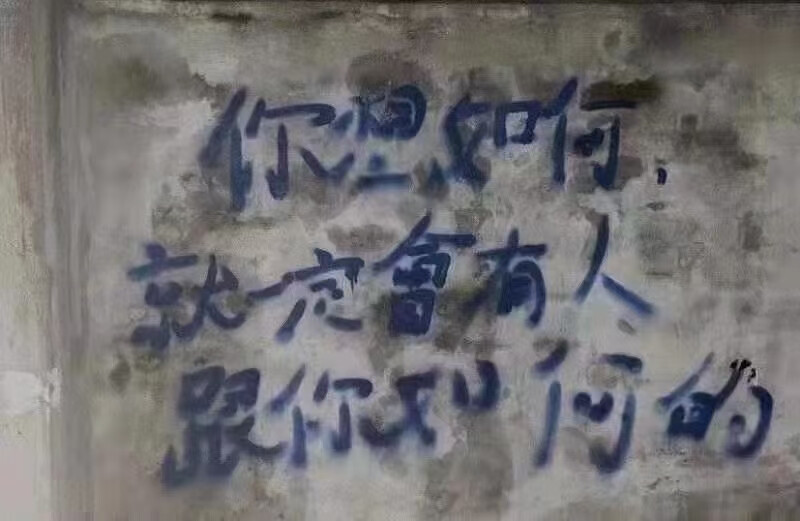 你想如何，
就一定會有人
跟你如何的